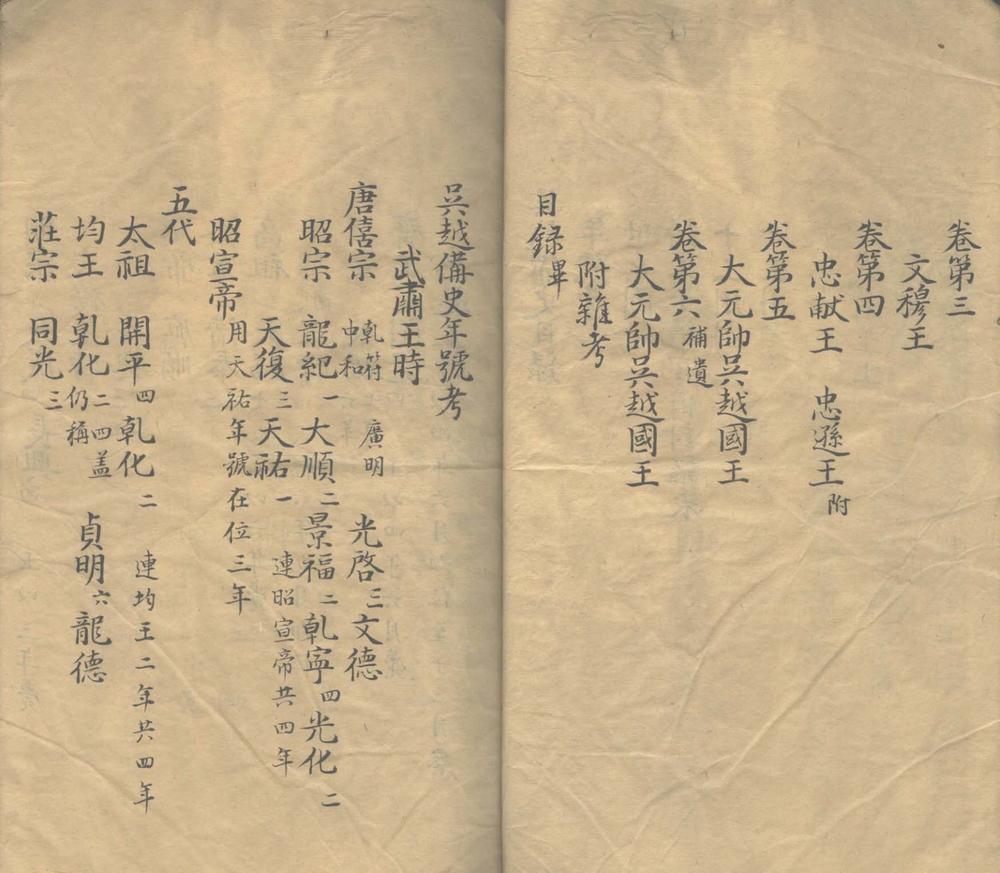 卷第三
文穆王
卷第四
忠献王 忠遜王附
卷第五
大元帥吳越國王
卷第六補遺
大元帥吳越國王
附雜考
目録畢
吳越備史年號考
武肅王時
唐僖宗 乹符 廣明 中和 光啓三 文德
昭宗 龍紀一 大順二 景福二 乹寧四 光化二
天復三 天祐一 連昭宣帝共四年
昭宣帝 用天祐年號在位三年
五代
太祖 開平四 乹化二 連均王二年共四年
均王 乹化二仍稱四蓋 貞明六 龍德
莊宗 同光三